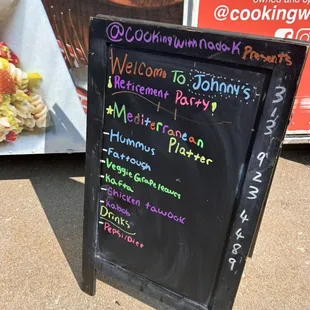 @cookingw
@Cooking with nada K Presents
Welcome To Johnny's
! Retirement Party!
Mediterranean
Platter
- Hummus
- Fattoush
- Veggie Grape leaves
- Kafta
- Chicken tawook
- Kabob
Drinks
- Pepsi/Diet
313 923 4489